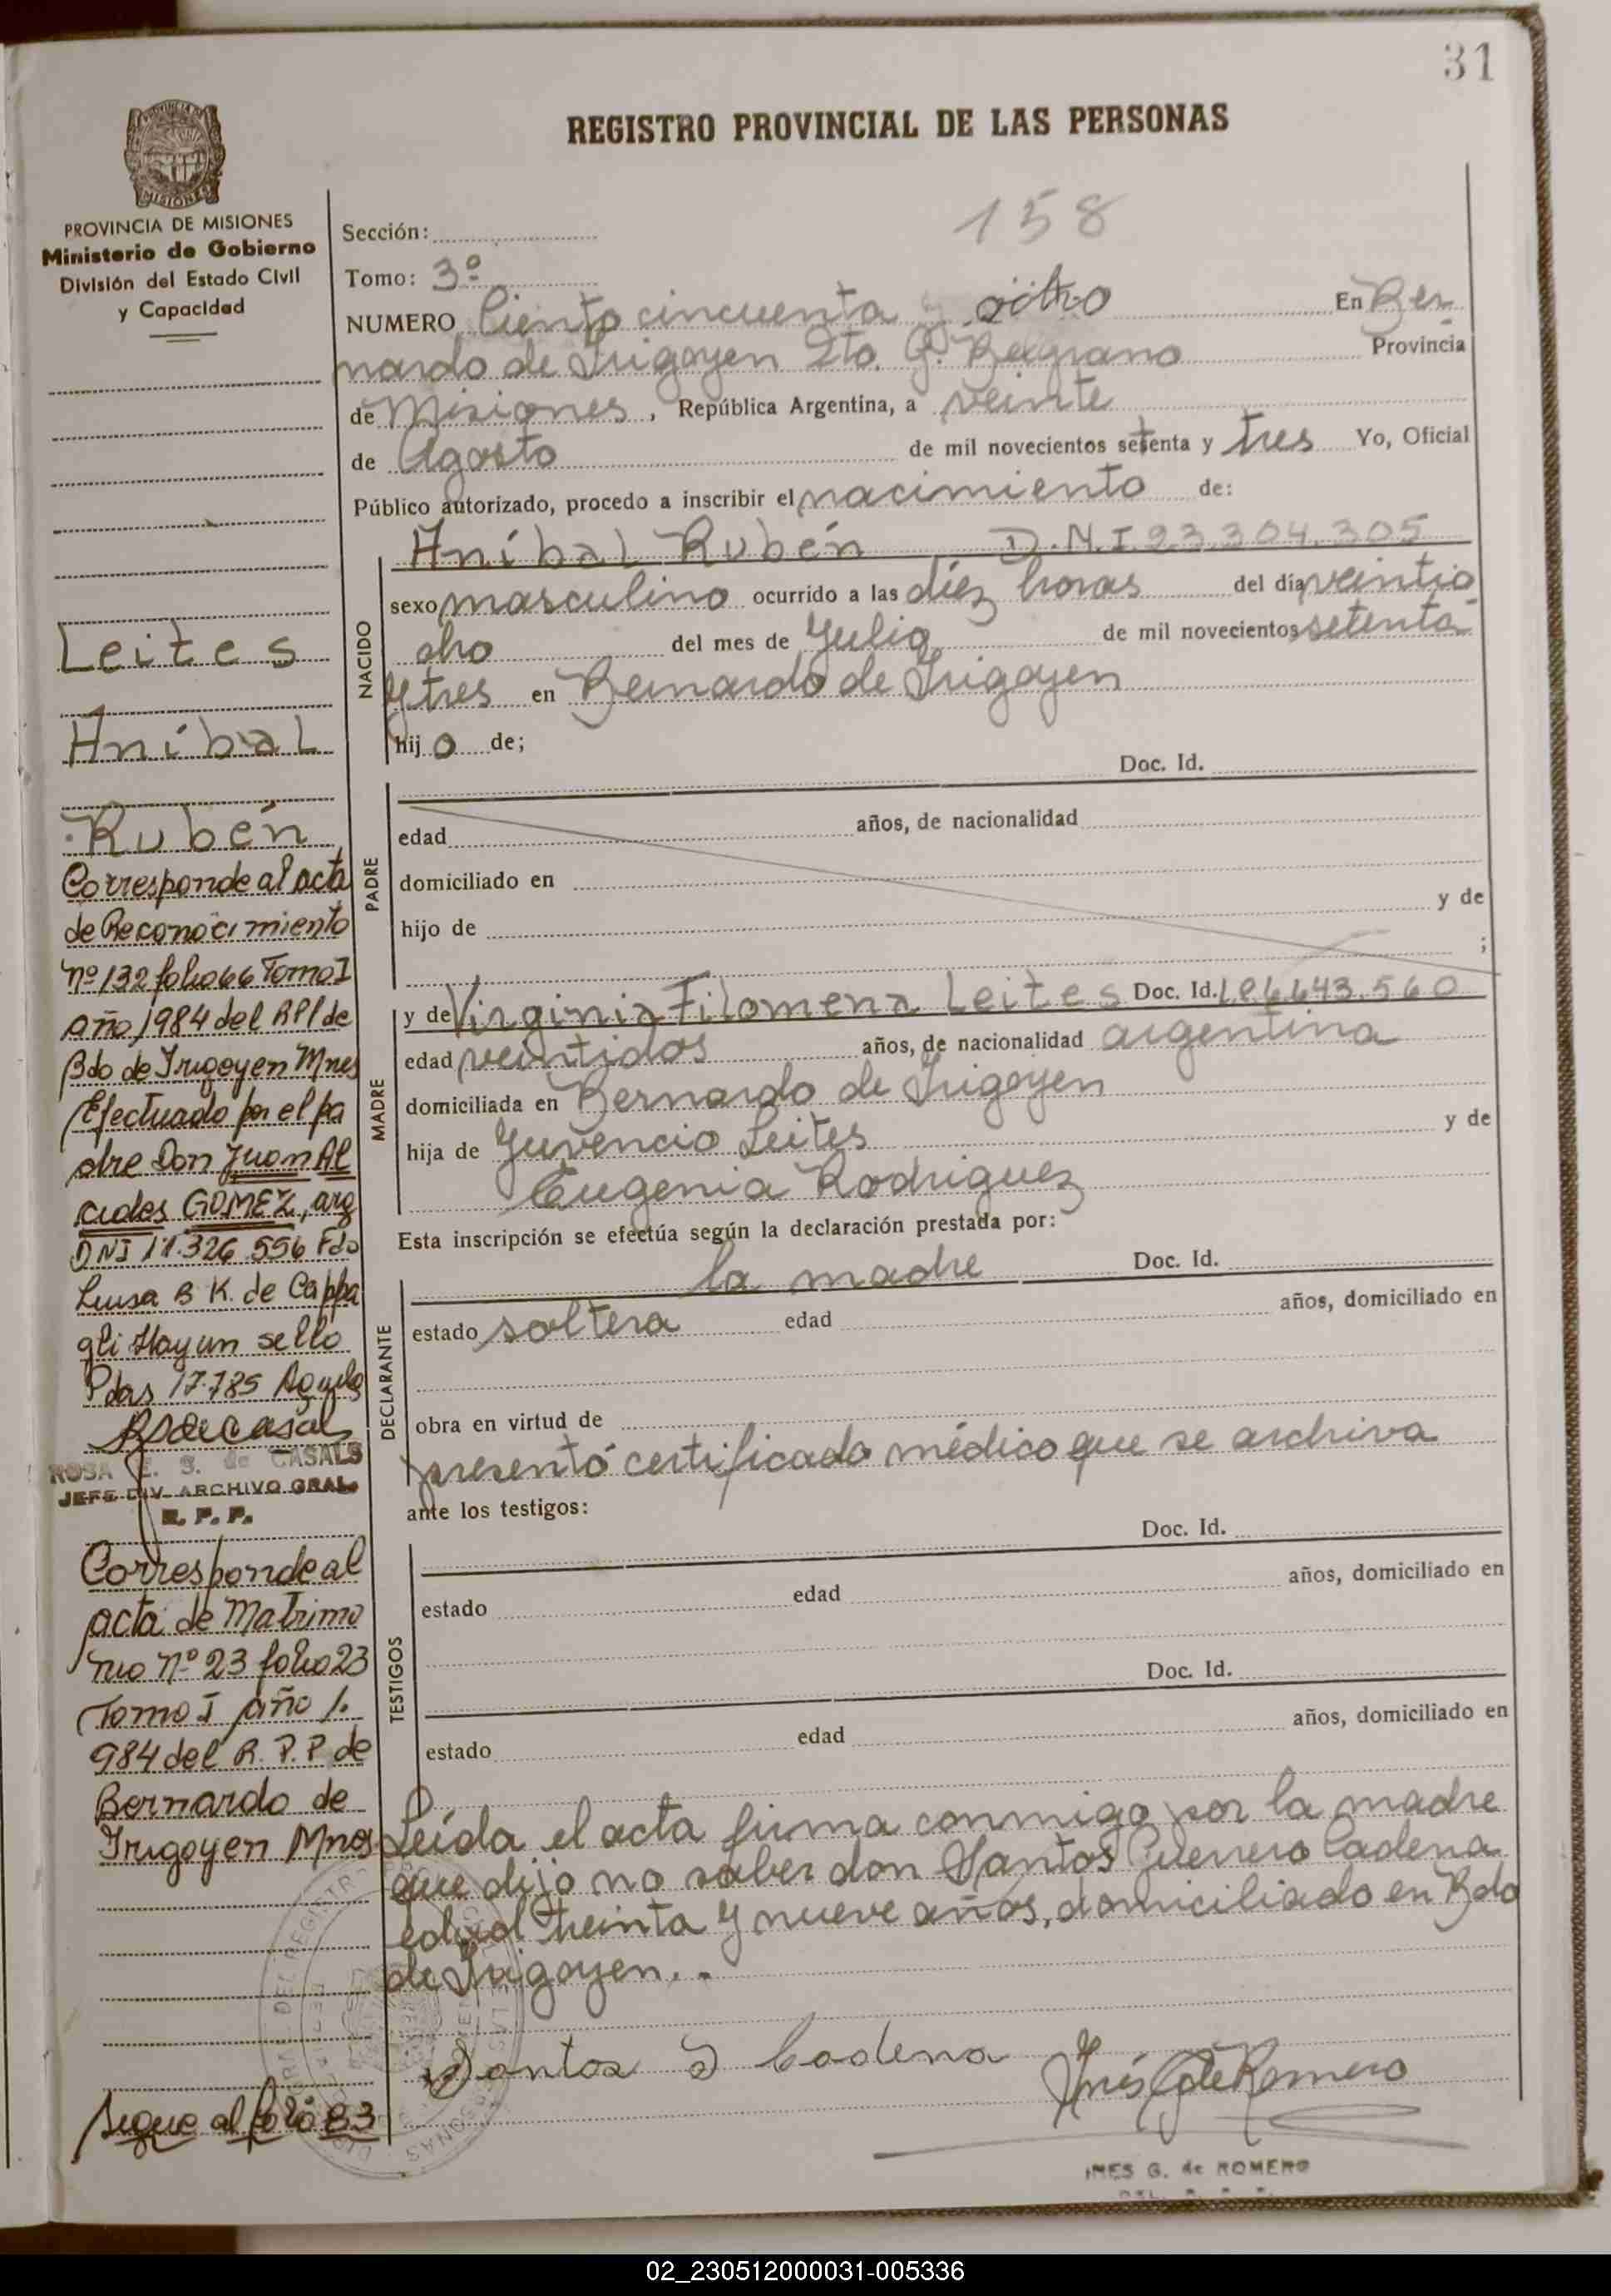 31
REGISTRO PROVINCIAL DE LAS PERSONAS
PROVINCIA DE MISIONES
Ministerio de Gobierno
División del Estado Civil
y Capacidad
Leites
Aníbal
Rubén
Corresponde al acta
de Reconocimiento
nº 132 folio 66 Tomo I
año 1984 del RPP de
Bdo de Irigoyen Mnes
Efectuado por el pa
dre Don Juan Al
cides GOMEZ, arg
DNI 11.326.556 Fdo
Luisa B K. de Cappa
gli Hay un sello
Pdas 17.785
ROSA E. S. de CASALS
JEFE DIV. ARCHIVO GRAL.
R. P. P.
Corresponde al
acta de Matrimo
nio nº 23 folio 23
Tomo I año 1.
984 del R. P. P de
Bernardo de
Irigoyen Mnes
Sigue al folio 83
158
Sección:
Tomo: 3º
NUMERO Ciento cincuenta y ocho En Ber
nardo de Irigoyen Dto. G. Belgrano Provincia
de Misiones, República Argentina, a veinte
de Agosto de mil novecientos setenta y tres Yo, Oficial
Público autorizado, procedo a inscribir el nacimiento de:
NACIDO
Aníbal Rubén D.N.I 23.304.305
sexo masculino ocurrido a las diez horas del día veintio
cho del mes de Julio de mil novecientos setenta
y tres en Bernardo de Irigoyen
hijo de;
PADRE
Doc. Id.
edad años, de nacionalidad
domiciliado en
hijo de y de
;
MADRE
y de Virginia Filomena Leites Doc. Id. 6.643.560
edad veintidos años, de nacionalidad argentina
domiciliada en Bernardo de Irigoyen
hija de Juvencio Leites y de
Eugenia Rodriguez
Esta inscripción se efectúa según la declaración prestada por:
DECLARANTE
la madre Doc. Id.
estado soltera edad años, domiciliado en
obra en virtud de
presentó certificado médico que se archiva
ante los testigos:
TESTIGOS
Doc. Id.
estado edad años, domiciliado en
Doc. Id.
estado edad años, domiciliado en
Leída el acta firma conmigo por la madre
que dijo no saber don Santos Guerrero Cadena
edad treinta y nueve años, domiciliado en Bdo
de Irigoyen. -
Santos G Cadena
Inés G de Romero
INES G. de ROMERO
02_230512000031-005336